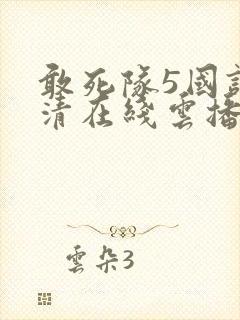 敢死隊5國
清在綫雲播
雲朵3